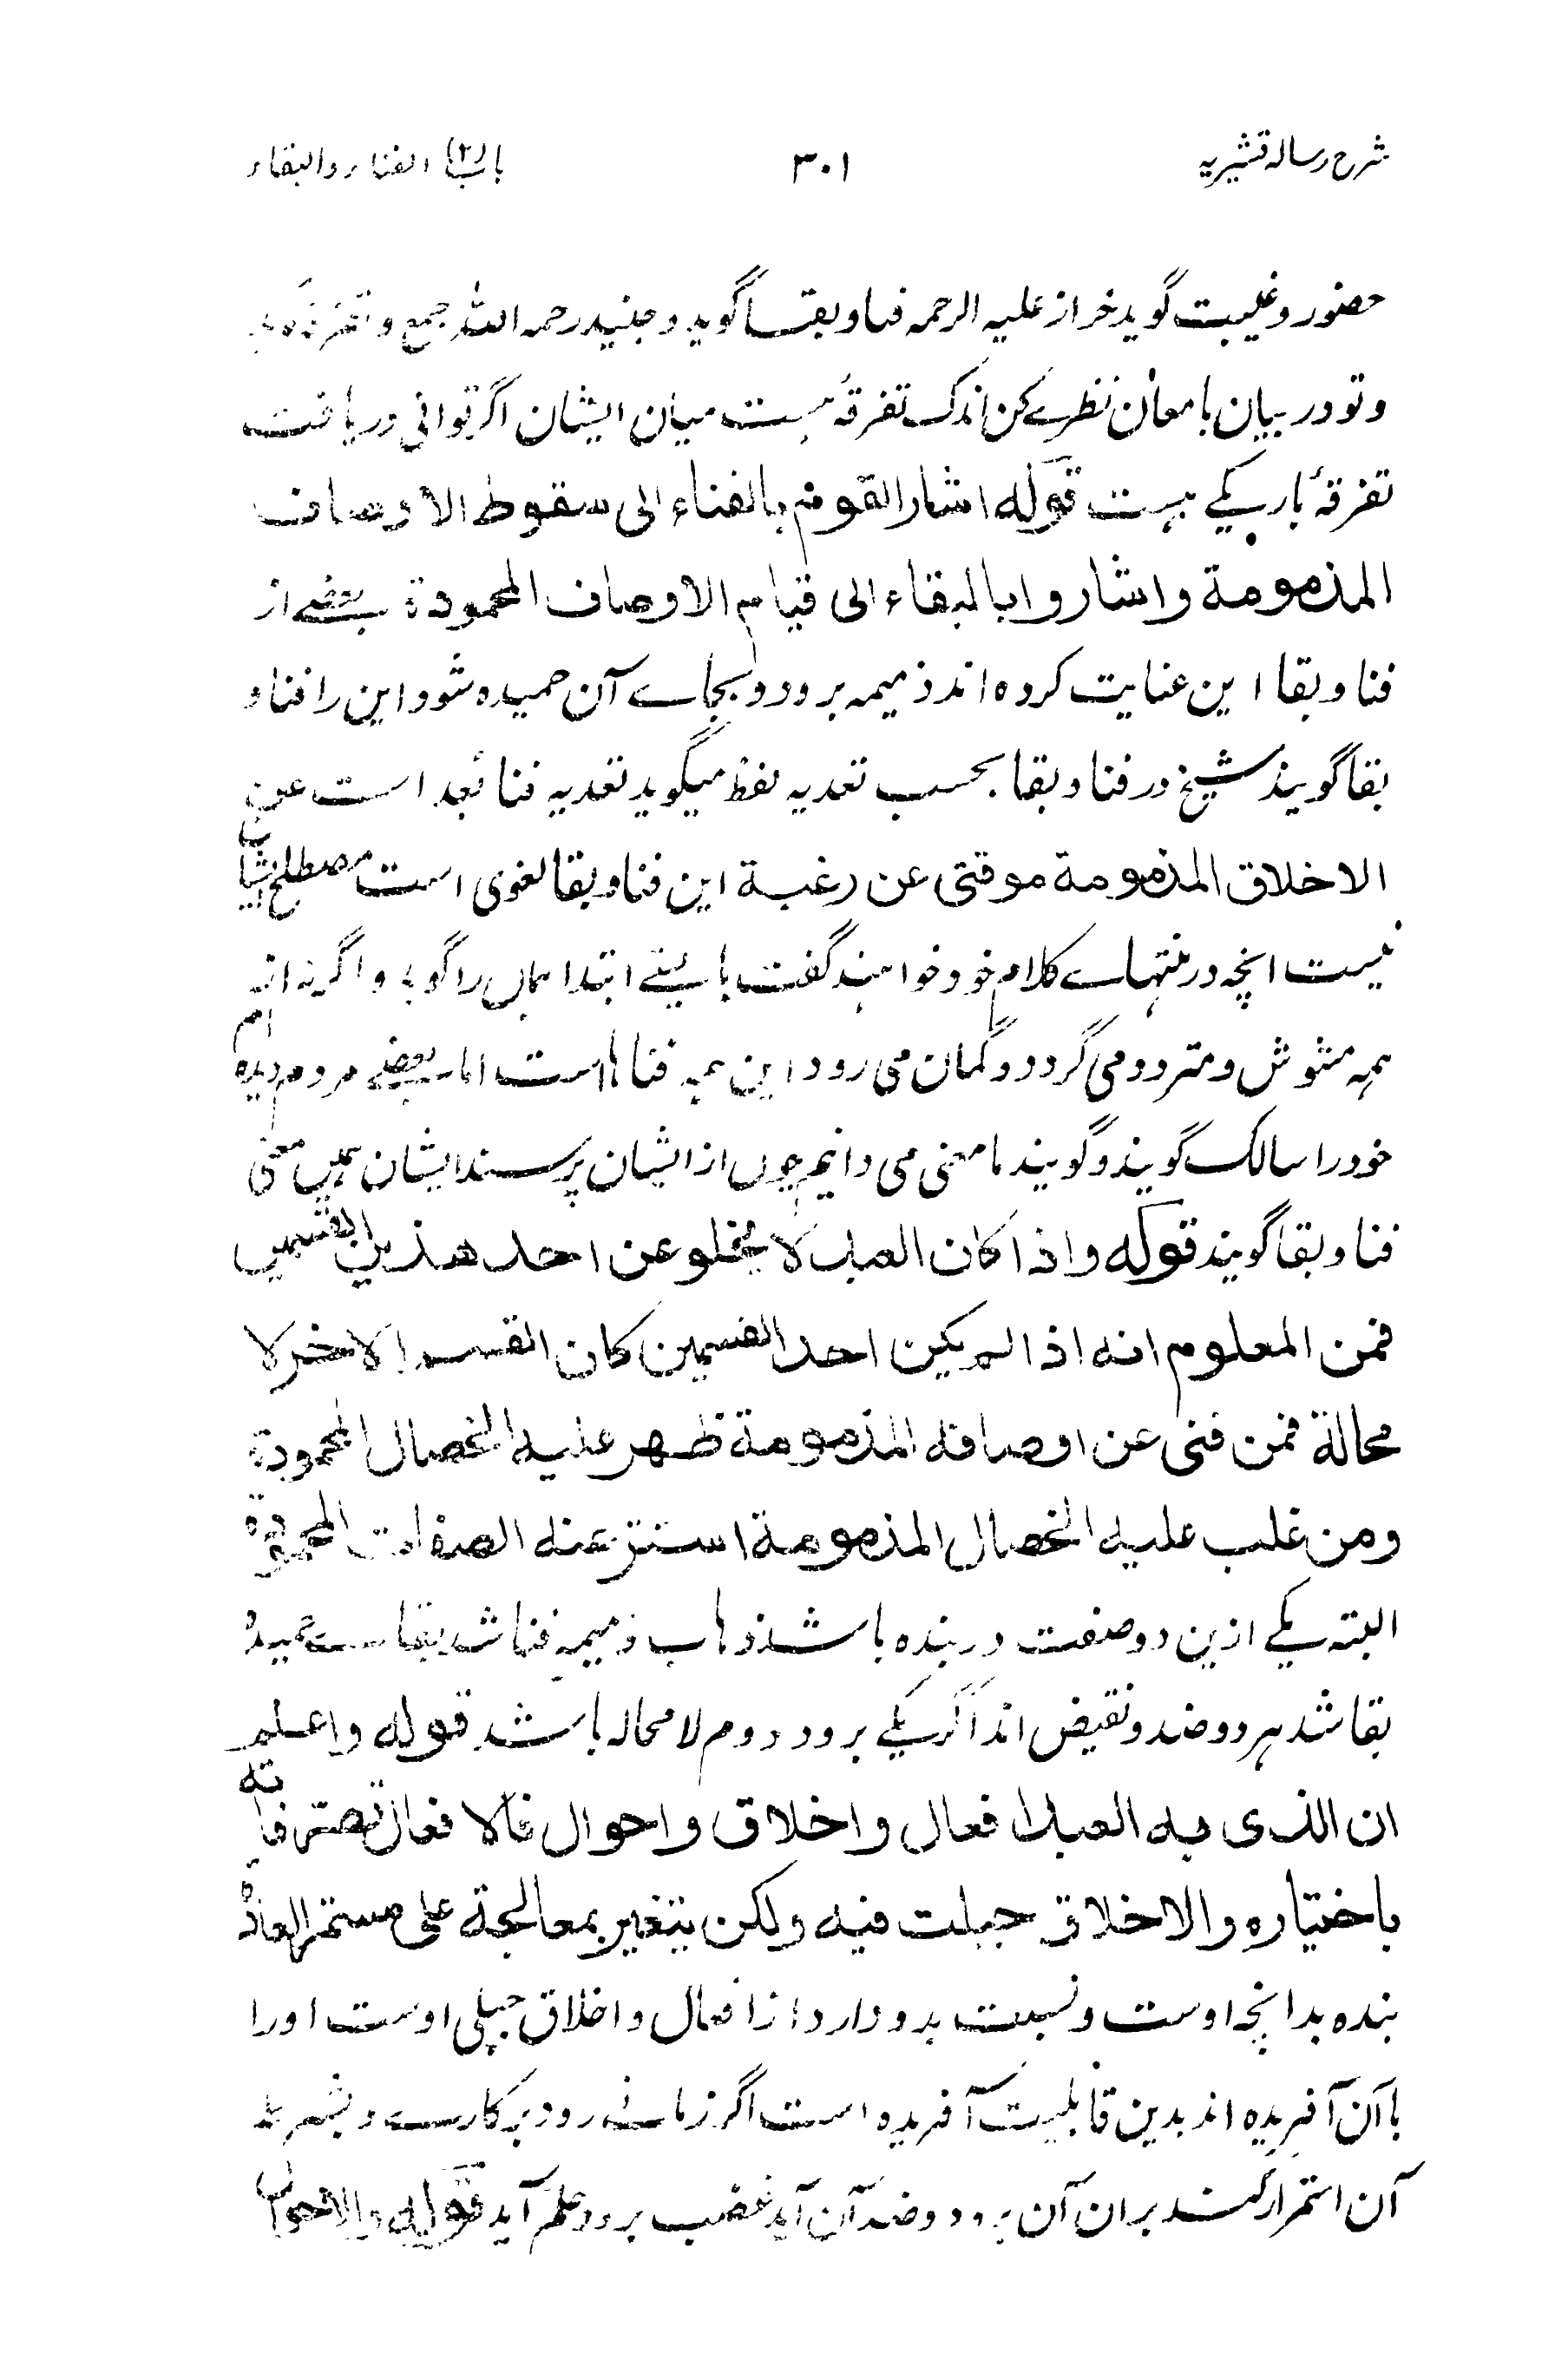 شرح رسالہ قشیریہ ۳۰۱ باب (۲) الفناء والبقاء
حضور و غیبت گوید خراز علیہ الرحمہ فنا و بقا گوید و جنید رحمہ اللہ جمع و تفرقہ گوید
و تو در بیان بامعان نظرے کن اندک تفرقۂ ہست میان ایشان اگر توانی دریافت
تفرقۂ باریکے ہست قوله اشار القوم بالفناء الی سقوط الاوصاف
المذمومة واشاروا بالبقاء الی قیام الاوصاف المحمودة بعضے از
فنا و بقا این عنایت کرده اند ذمیمه برود و بجاے آن حمیده شود این را فنا و
بقا گویند شیخ در فنا و بقا بحسب تعدیه لفظ میگوید تعدیه فنا بعد است عن
الاخلاق المذمومة موقتی عن رغبة این فنا و بقا لغوی است مصطلح ایشان
نیست انچه در منتہاے کلام خود خواہند گفت بایستے ابتدا ہماں را گوید و اگر نه از
ہمه مشوش و متردد می گردد و گمان می رود این ہمه فنا ہا است اما بعضے مردم دیده ام
خود را سالک گویند و گویند ما معنی می دانیم چوں از ایشان پرسند ایشان ہمیں معنی
فنا و بقا گویند قوله واذا کان العبد لا یخلو عن احد هذین القسمین
فمن المعلوم انه اذا لم یکن احد القسمین کان القسم الاخر لا
محالة فمن فنی عن اوصافه المذمومة ظهر علیه الخصال المحمودة
ومن غلب علیه الخصال المذمومة استتر عنه الصفات المحمودة
البته یکے ازین دو صفت در بنده باشد ذہاب ذمیمه فنا شد بقاے حمیده
بقا شد ہر دو ضد و نقیض اند اگر یکے برود دوم لامحاله باشد قوله واعلم
ان الذی به العبد افعال واخلاق واحوال فالافعال تصرفاته
باختیاره والاخلاق جبلت فیه ولکن یتغیر بمعالجة علی مستمر العادة
بنده بدانچه اوست و نسبت بدو دارد از افعال و اخلاق جبلی اوست او را
با آن آفریده اند بدین قابلیت آفریده است اگر زمانے رود بر کارے و بشرط
آن استمرار کند بران آن برود و ضد آن آید غضب برود حلم آید قوله والاحوال